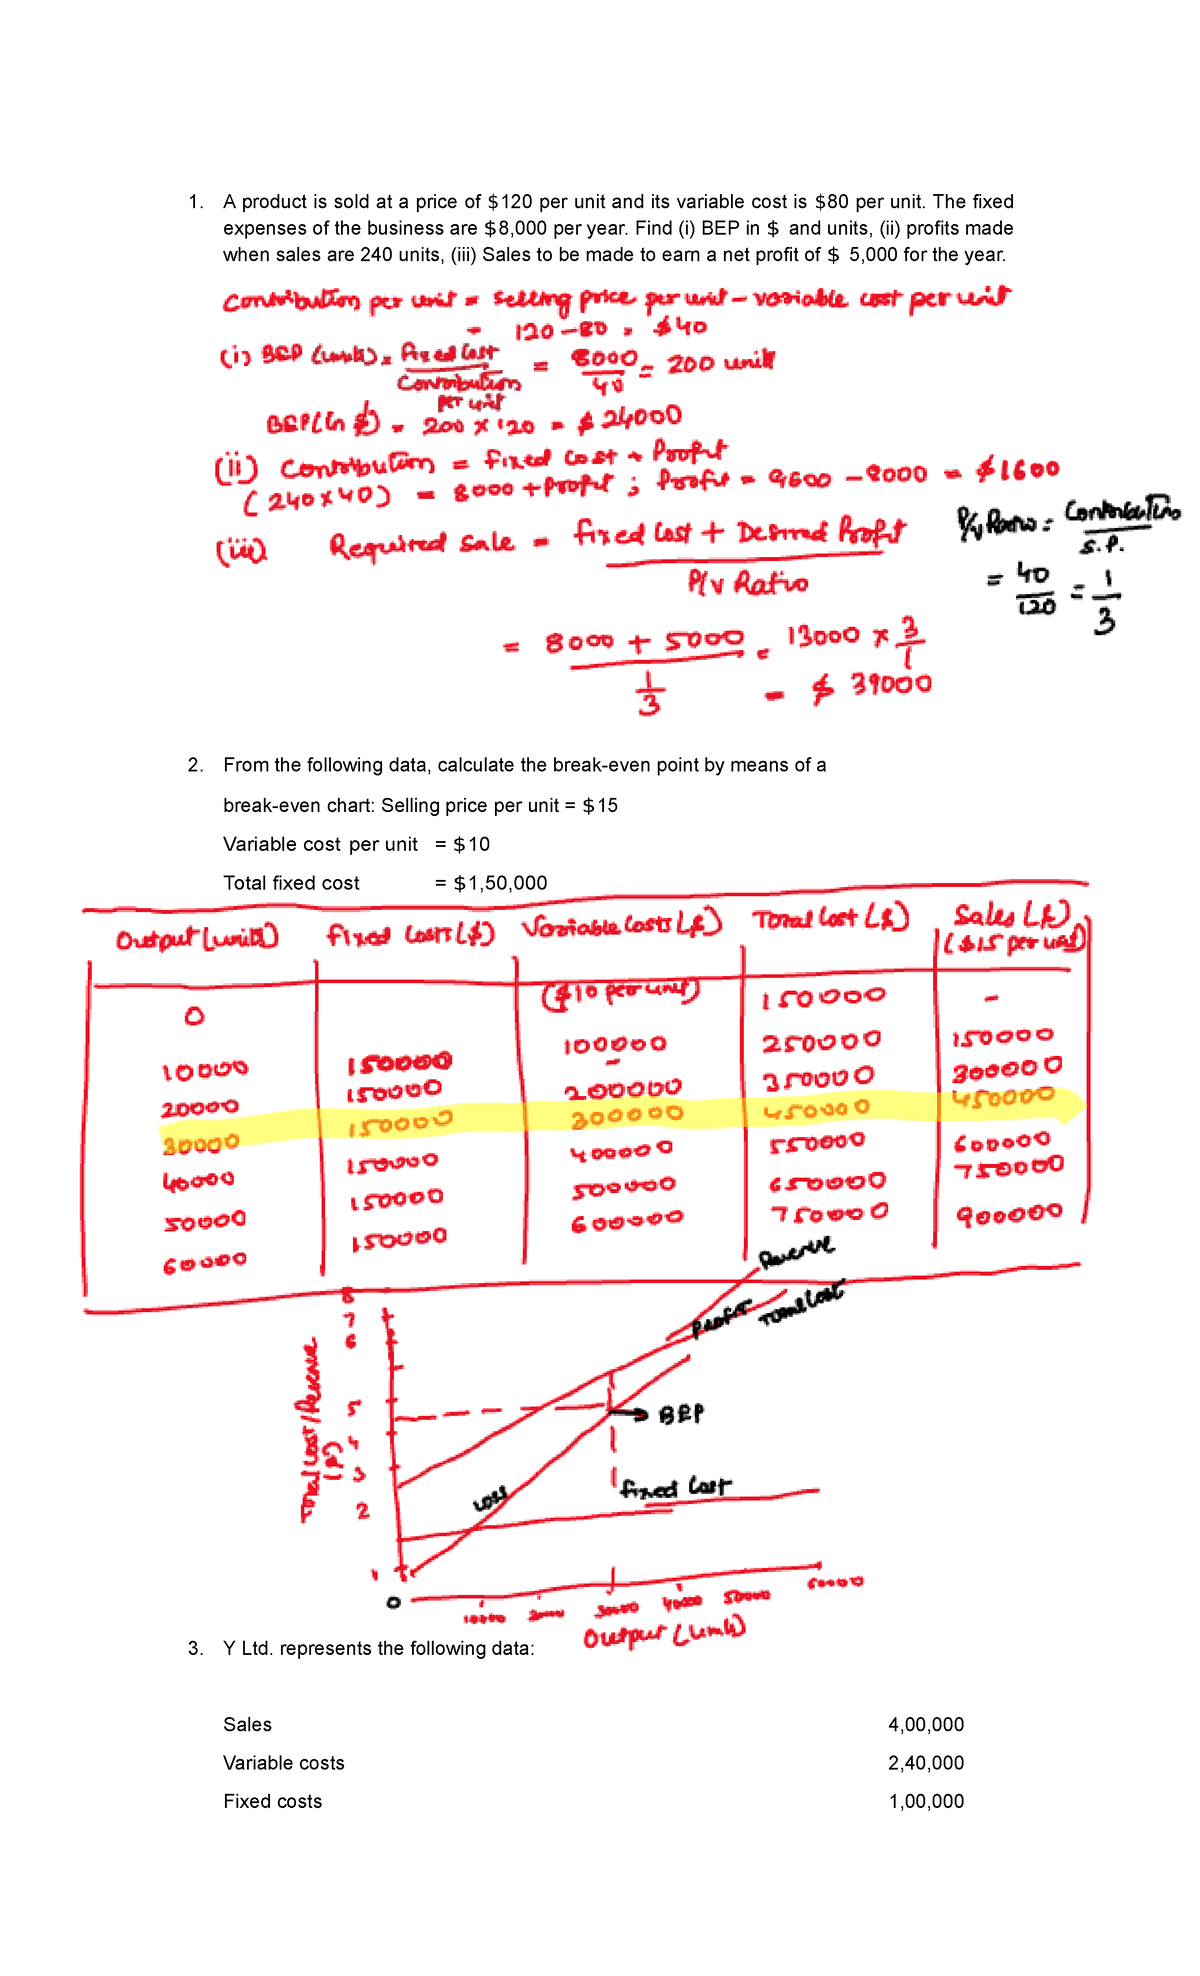 1. A product is sold at a price of $120 per unit and its variable cost is $80 per unit. The fixed
expenses of the business are $8,000 per year. Find (i) BEP in $ and units, (ii) profits made
when sales are 240 units, (iii) Sales to be made to earn a net profit of $ 5,000 for the year.
Contribution per unit = selling price per unit - variable cost per unit
= 120 - 80 = $40
(i) BEP (units) = Fixed Cost / Contribution per unit = 8000 / 40 = 200 units
BEP (in $) = 200 x 120 = $24000
(ii) Contribution = fixed cost + Profit
(240 x 40) = 8000 + Profit ; Profit = 9600 - 8000 = $1600
(iii) Required Sale = fixed Cost + Desired Profit / P/V Ratio
P/V Ratio = Contribution / S.P.
= 40 / 120 = 1 / 3
= 8000 + 5000 / 1/3 = 13000 x 3/1
= $ 39000
2. From the following data, calculate the break-even point by means of a
break-even chart: Selling price per unit = $15
Variable cost per unit = $10
Total fixed cost = $1,50,000
Output (units) Fixed Costs ($) Variable Costs ($) Total Cost ($) Sales ($)
($15 per unit)
0 ($10 per unit) 150000 -
-
10000 150000 100000 250000 150000
20000 150000 200000 350000 300000
30000 150000 300000 450000 450000
40000 150000 400000 550000 600000
50000 150000 500000 650000 750000
60000 150000 600000 750000 900000
Revenue
Profit
Total Cost
8
7
6
5
4
3
2
1
Total Cost / Revenue
($)
BEP
Loss
Fixed Cost
0
10000 20000 30000 40000 50000 60000
Output (Units)
3. Y Ltd. represents the following data:
Sales 4,00,000
Variable costs 2,40,000
Fixed costs 1,00,000